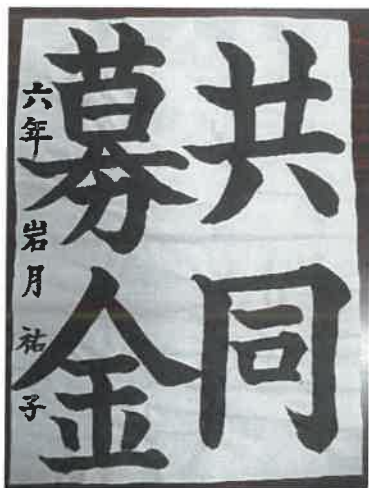 共同
募金
六年 岩月 祐子